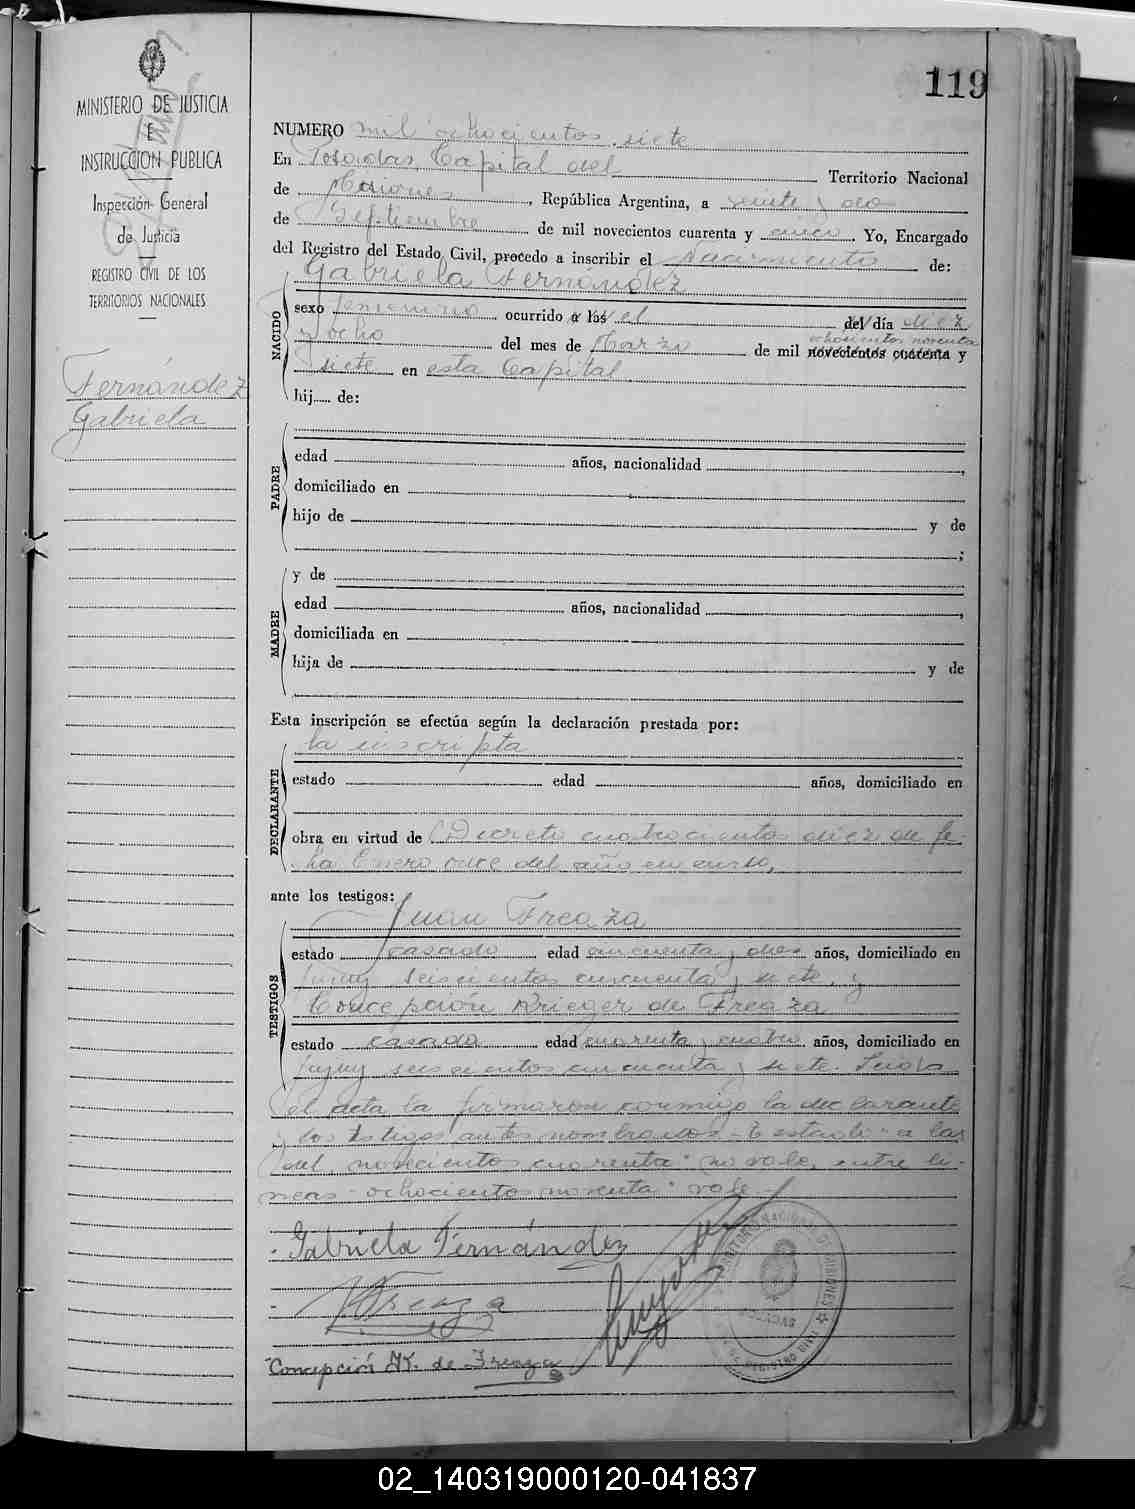 119
MINISTERIO DE JUSTICIA
E
INSTRUCCION PUBLICA
Inspección General
de Justicia
REGISTRO CIVIL DE LOS
TERRITORIOS NACIONALES
Fernández
Gabriela
NUMERO mil ochocientos siete
En Posadas, Capital del Territorio Nacional
de Misiones, República Argentina, a veinte y dos
de Septiembre de mil novecientos cuarenta y cinco. Yo, Encargado
del Registro del Estado Civil, procedo a inscribir el Nacimiento de:
NACIDO
Gabriela Fernández
sexo femenino ocurrido a las el del día diez
y ocho del mes de Marzo de mil novecientos cuarenta y
ochocientos noventa
siete en esta Capital
hij..... de:
PADRE
edad años, nacionalidad ,
domiciliado en
hijo de y de
;
MADRE
y de
edad años, nacionalidad ,
domiciliada en
hija de y de
Esta inscripción se efectúa según la declaración prestada por:
DECLARANTE
la inscripta
estado edad años, domiciliado en
obra en virtud de Decreto cuatrocientos diez de fe-
cha Enero once del año en curso,
ante los testigos:
TESTIGOS
Juan Freaza
estado casado edad cincuenta y dos años, domiciliado en
Jujuy seiscientos cincuenta y siete, y
Concepción Krieger de Freaza
estado casada edad cuarenta y cuatro años, domiciliado en
Jujuy seiscientos cincuenta y siete. Leida
el acta la firmaron conmigo la declarante
y los testigos antes nombrados - Testado "a las
del, novecientos cuarenta" no vale, entre li-
neas - ochocientos noventa" vale -
Gabriela Fernández
Freaza
Concepción K. de Freaza
02_140319000120-041837